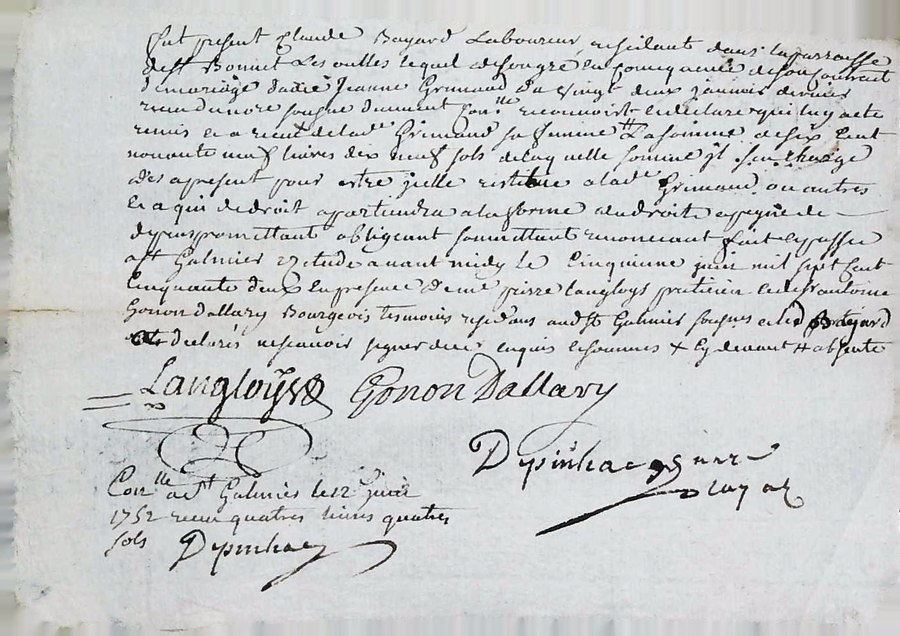 fut present Claude Bayard Laboureur, residant dans la parroisse
de st Bonnet Les oulles lequel de son gre en Consequence de son Contrat
de mariage dadie Jeanne Grimaud du vingt deux janvier dernier
receu du nore soigné dument Con.lle reconnoist et declare qui luy a ete
remis et a receu de lade Grimaud sa femme H La somme de six Cent
nonante neuf livres dix neuf sols de laquelle somme jl sen charge
des a present pour estre jcelle restitue a lade Grimaud, ou autres
et a qui de droit appartiendra a la forme du droit a peyne de
depans promettant obligeant soumettant renoncant fait et passé
a st Galmier etude avant midy le Cinquieme juin mil sept Cent
Cinquante deux en presence de me pierre Langloys praticien et de sr antoine
Gonon Dallary Bourgeois tesmoins residans aud st Galmier soignes et led Bayard
declarés ne scavoir signer de ce enquis et sommes + cy devant H absente
Langloys Gonon Dallary
Depinhac
Con.lle a st Galmier le 12 juin
1752 receu quatres livres quatres
sols Depinhac